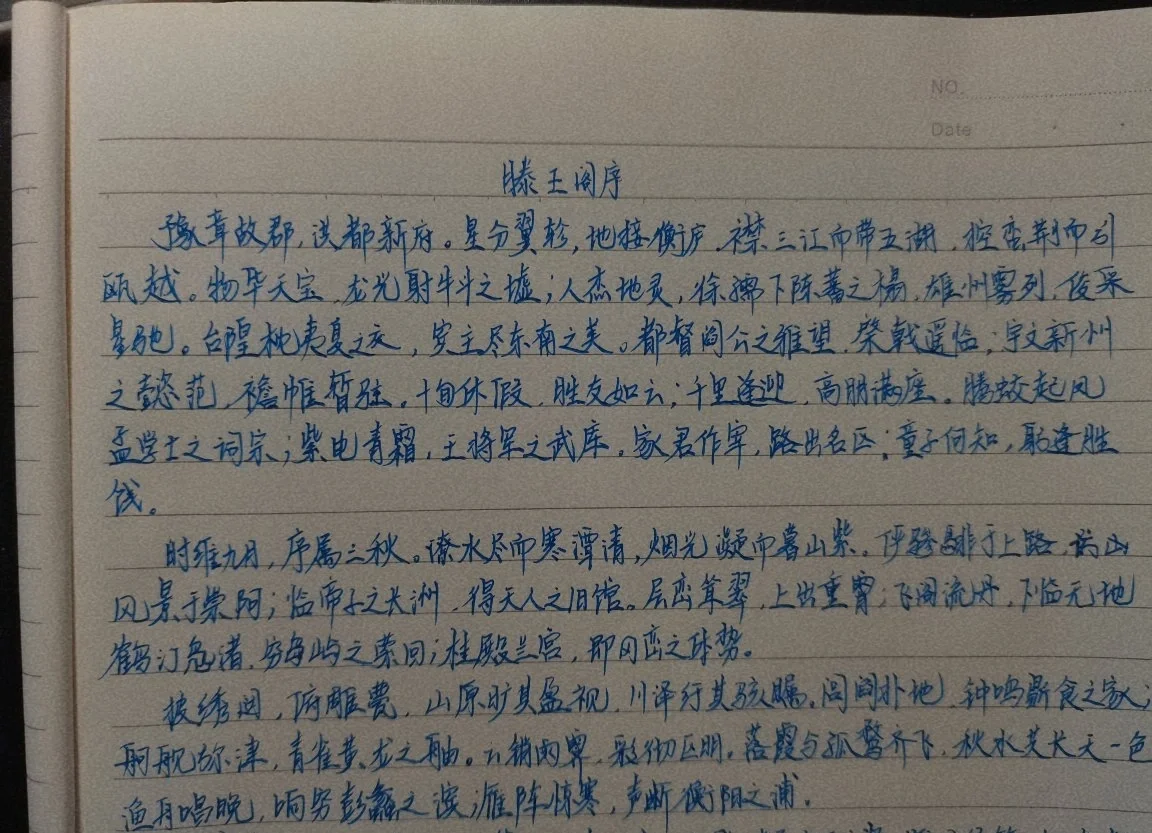 NO.
Date
滕王阁序
豫章故郡,洪都新府。星分翼轸,地接衡庐,襟三江而带五湖,控蛮荆而引
瓯越。物华天宝,龙光射牛斗之墟;人杰地灵,徐孺下陈蕃之榻,雄州雾列,俊采
星驰。台隍枕夷夏之交,宾主尽东南之美。都督阎公之雅望,棨戟遥临;宇文新州
之懿范,襜帷暂驻。十旬休假,胜友如云;千里逢迎,高朋满座。腾蛟起风
孟学士之词宗;紫电青霜,王将军之武库。家君作宰,路出名区;童子何知,躬逢胜
饯。
时维九月,序属三秋。潦水尽而寒潭清,烟光凝而暮山紫。俨骖騑于上路,访
风景于崇阿;临帝子之长洲,得天人之旧馆。层峦耸翠,上出重霄;飞阁流丹,下临无地
鹤汀凫渚,穷岛屿之萦回;桂殿兰宫,即冈峦之体势。
披绣闼,俯雕甍,山原旷其盈视,川泽纡其骇瞩。闾阎扑地,钟鸣鼎食之家;
舸舰弥津,青雀黄龙之舳。云销雨霁,彩彻区明。落霞与孤鹜齐飞,秋水共长天一色
渔舟唱晚,响穷彭蠡之滨;雁阵惊寒,声断衡阳之浦。